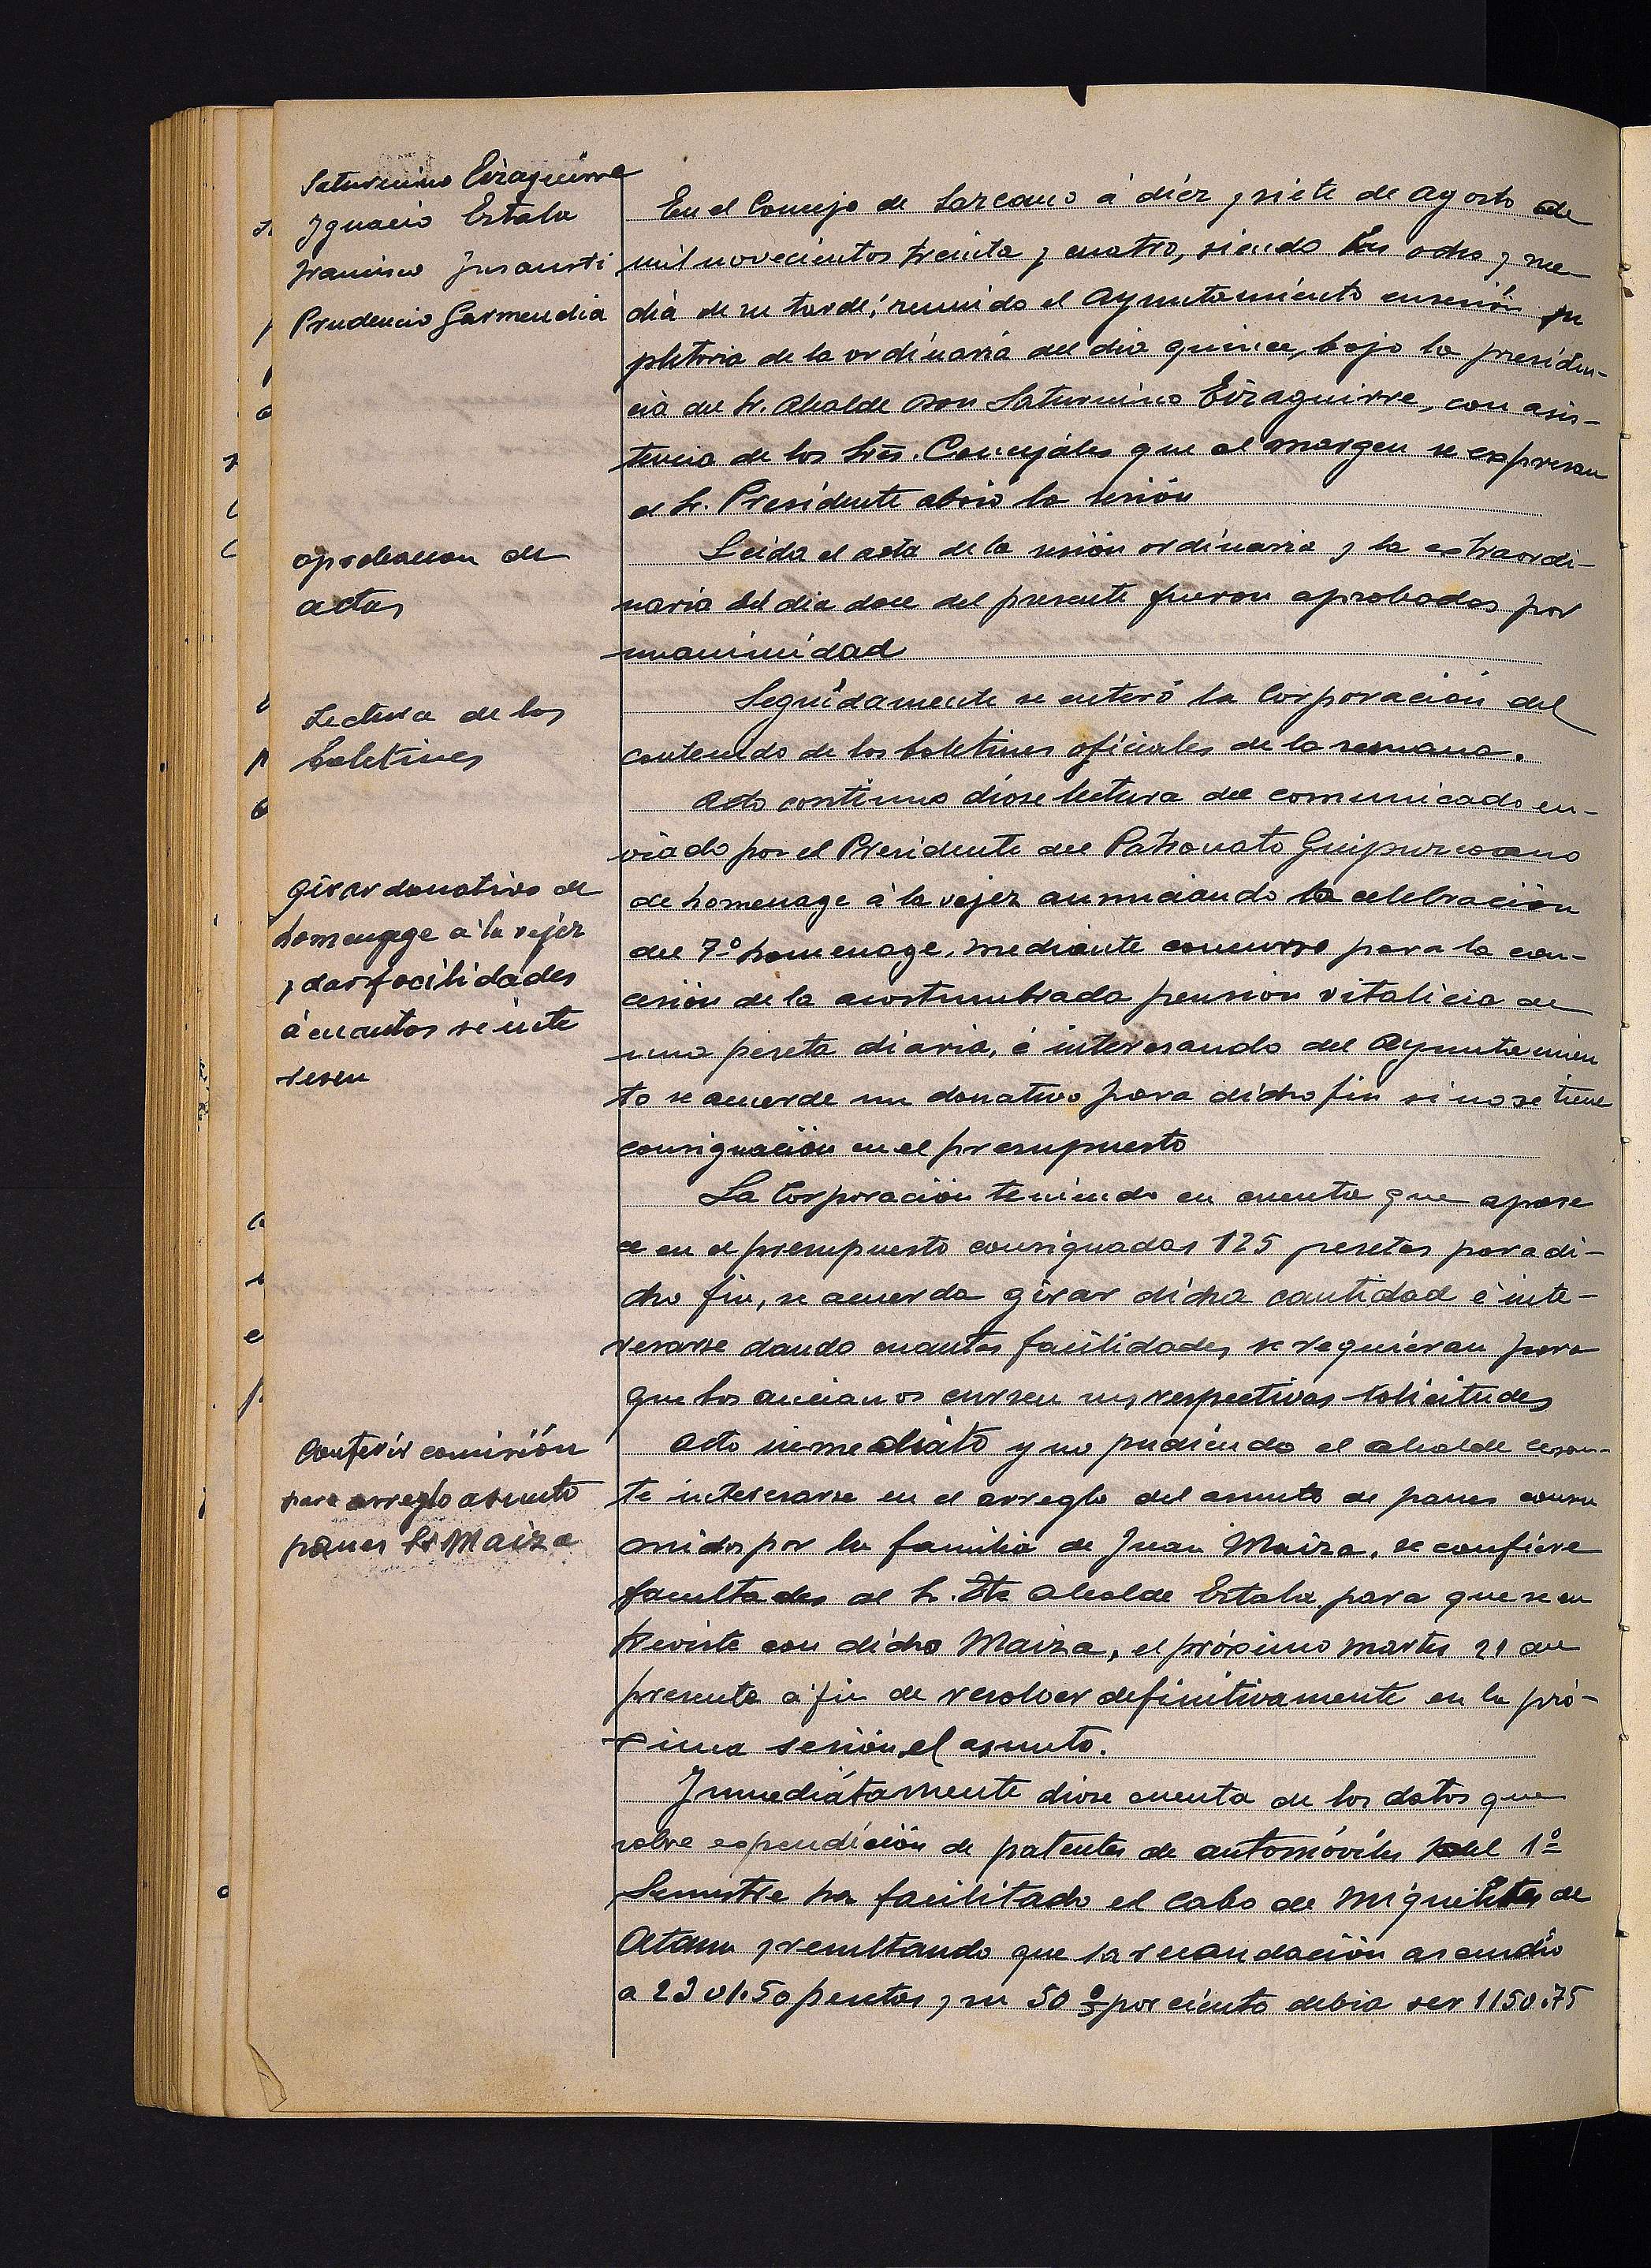 Saturnino Eizaguirre
Ygnacio Estala
Francisco Jusausti
Prudencio Garmendia
En el Concejo de Lazcano á diéz y siete de Agosto de
mil novecientos treinta y cuatro, siendo las ocho y me
dia de su tarde, reunido el Ayuntamiento en sesión su
pletoria de la ordinaria del dia quince, bajo la presiden-
cia del Sr. Alcalde Don Saturnino Eizaguirre, con asis-
tencia de los Srēs. Concejáles que al margen se expresan
el Sr. Presidente abrio la sesión
aprobacion de
actas
Leida el acta de la sesión ordinaria y la extraordi-
naria del dia doce del presente fueron aprobadas por
unanimidad
Lectura de los
boletines
Seguidamente se enteró la Corporación del
contenido de los boletines oficiales de la semana.
Acto continuo diose lectura del comunicado en-
viado por el Presidente del Patronato Guipuzcoano
Girar donativo de
homenage a la vejéz
y dar facilidades
á cuantos se inte
resen
de homenage á la vejez anunciando la celebración
del 7º homenage, mediante concurso para la con-
cesión de la acostumbrada pensión vitalicia de
una peseta diaria, é interesando del Ayuntamien
to se acuerde un donativo para dicho fin si no se tiene
consignación en el presupuesto
La Corporación teniendo en cuenta que apare
ce en el presupuesto consignadas 125 pesetas para di-
cho fin, se acuerda girar dicha cantidad é inte-
resarse dando cuantas facilidades se requiéran para
que los ancianos cursen sus respectivas solicitudes
Conferir comisión
para arreglo asunto
panes Sr Maiza
Acto inmediáto y no pudiéndo el alcalde
te interesarse en el arreglo del asunto de panes consu
midos por la familia de Juan Maiza, se confiére
facultades al Sr. Tte Alcalde Estala para que se en
treviste con dicho Maiza, el próximo martes 21 del
presente á fin de resolver definitivamente en la pró-
xima sesión el asunto.
Ynmediátamente diose cuenta de los datos que
sobre expendición de patentes de automóviles del 1º
Semestre ha facilitado el Cabo de Migueletes de
Ataun y resultando que la recaudación ascendio
a 2301.50 pesetas y su 50 % por ciento debia ser 1150.75